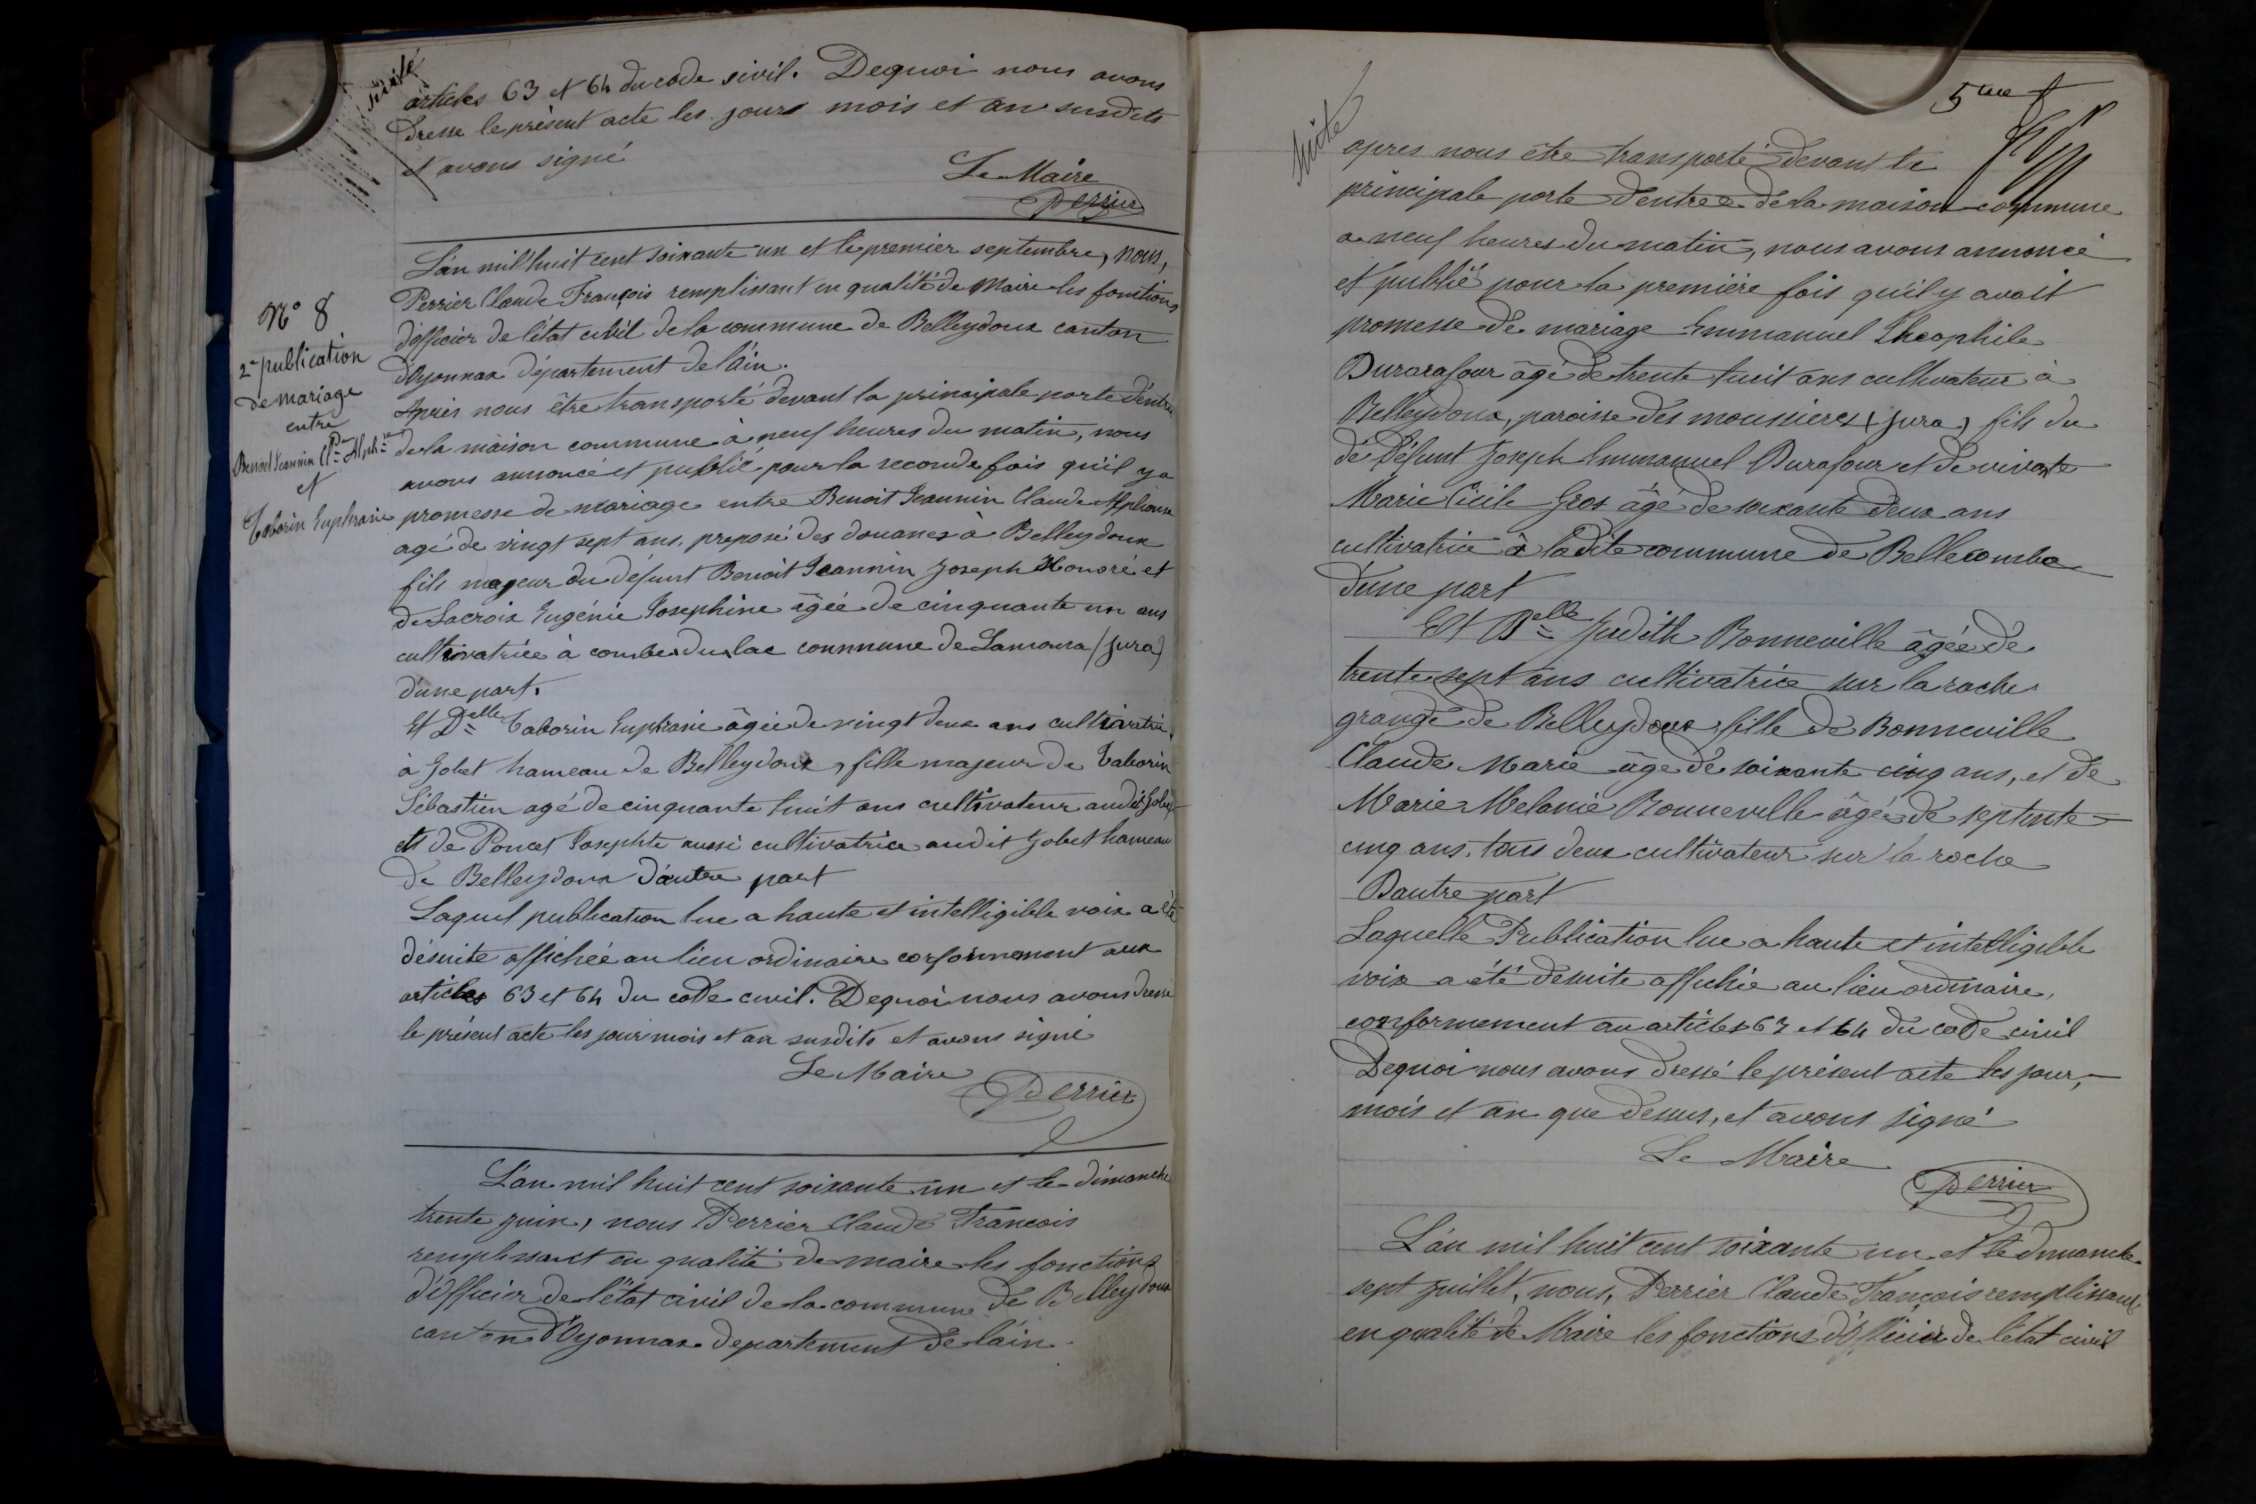 suite
articles 63 et 64 du code civil. Dequoi nous avons
dresse le présent acte les jours mois et an susdits
et avons signé
Le Maire
Perrier
L'an mil huit cent soixante un et le premier septembre, nous,
Perrier Claude François remplissant en qualité de Maire les fonctions
d'officier de l'état civil de la commune de Belleydoux canton
d'Oyonnax département de l'Ain.
Après nous être transporté devant la principale porte d'entrée
de la maison commune à neuf heures du matin, nous
avons annoncé et publié pour la seconde fois qu'il y a
promesse de mariage entre Benoit Jeannin Claude Alphonse
agé de vingt sept ans, preposé des douanes à Belleydoux
fils majeur du défunt Benoit Jeannin Joseph Honoré et
de Lacroix Eugénie Josephine âgée de cinquante un ans
cultivatrice à combe du lac commune de Lamoura (Jura)
d'une part.
Et Delle Taborin Euphrasie âgée de vingt deux ans cultivatrice
à Gobet hameau de Belleydoux, fille majeur de Taborin
Sébastien agé de cinquante huit ans cultivateur audit Gobet
et de Poncet Josephte aussi cultivatrice audit Gobet hameau
de Belleydoux d'autre part
Laquel publication lue a haute et intelligible voix a été
désuite affichée au lieu ordinaire conformement aux
articles 63 et 64 du code civil. Dequoi nous avons dressé
le présent acte les jour mois et an susdits et avons signé
Le Maire
Perrier
N° 8
2e publication
de mariage
entre
Benoit Jeannin Cde Alphse
et
Taborin Euphrasie
L'an mil huit cent soixante un et le dimanche
trente juin, nous Perrier Claude Francois
remplissant en qualité de maire les fonctions
d'Officier de l'état civil de la commune de Belleydoux
canton d'Oyonnax departement de l'ain
5me f
suite
apres nous être transporté devant le
principale porte d'entree de la maison commune
a neuf heures du matin, nous avons annoncé
et publié pour la première fois qu'il y avait
promesse de mariage Emmanuel Theophile
Durarafour âgé de trente huit ans cultivateur à
Belleydoux, paroisse des moussieres (jura) fils du
de défunt Joseph Emmanuel Durafour et de vivante
Marie Cécile Gros âgé de soixante deux ans
cultivatrice à ladite commune de Bellecombe
d'une part
Et Delle Judith Bonneville âgée de
trente sept ans cultivatrice sur la roche
grange de Belleydoux, fille de Bonneville
Claude Marie âge de soixante cinq ans, et de
Marie Melanie Bonneville âgée de septente
cinq ans, tous deux cultivateur sur la roche
D'autre part
Laquelle Publication lue a haute et intelligible
voix a été desuite affichée au lieu ordinaire,
conformement au articles 63 et 64 du code civil
Dequoi nous avons dressé le présent acte les jour,
mois et an que dessus, et avons signé
Le Maire
Perrier
L'an mil huit cent soixante un et le dimanche
sept juillet, nous, Perrier Claude François remplissant
en qualité de Maire les fonctions d'Officier de l'état civil